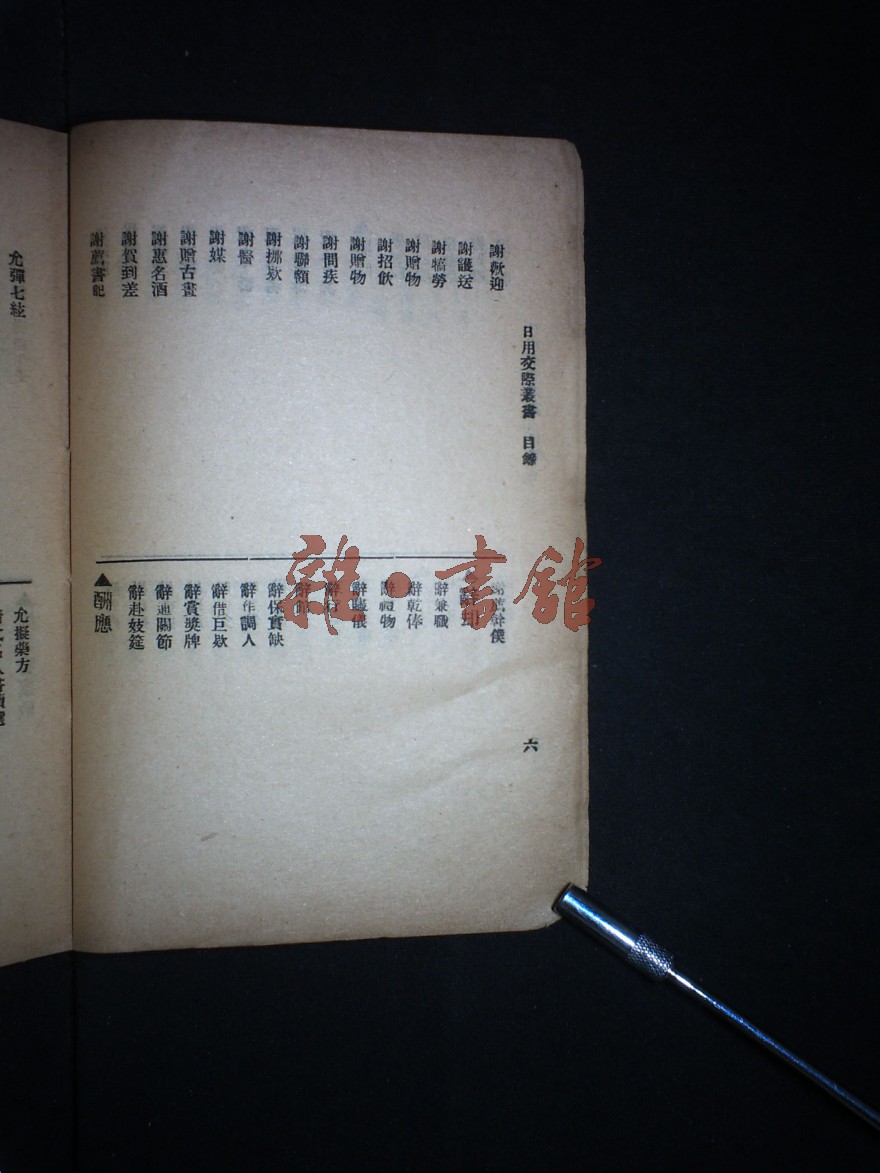 日用交際叢書 目錄
六
謝歡迎
謝護送
謝犒勞
謝贈物
謝招飲
謝贈物
謝問疾
謝聯額
謝挪欵
謝醫
謝媒
謝贈古畫
謝惠名酒
謝賀到差
謝薦書記
僕
辭兼職
辭乾俸
辭禮物
辭贐儀
辭保實缺
辭作調人
辭借巨欵
辭賞獎牌
辭通關節
辭赴妓筵
▲酬應
允彈七絃
允擬藥方
雜·書館